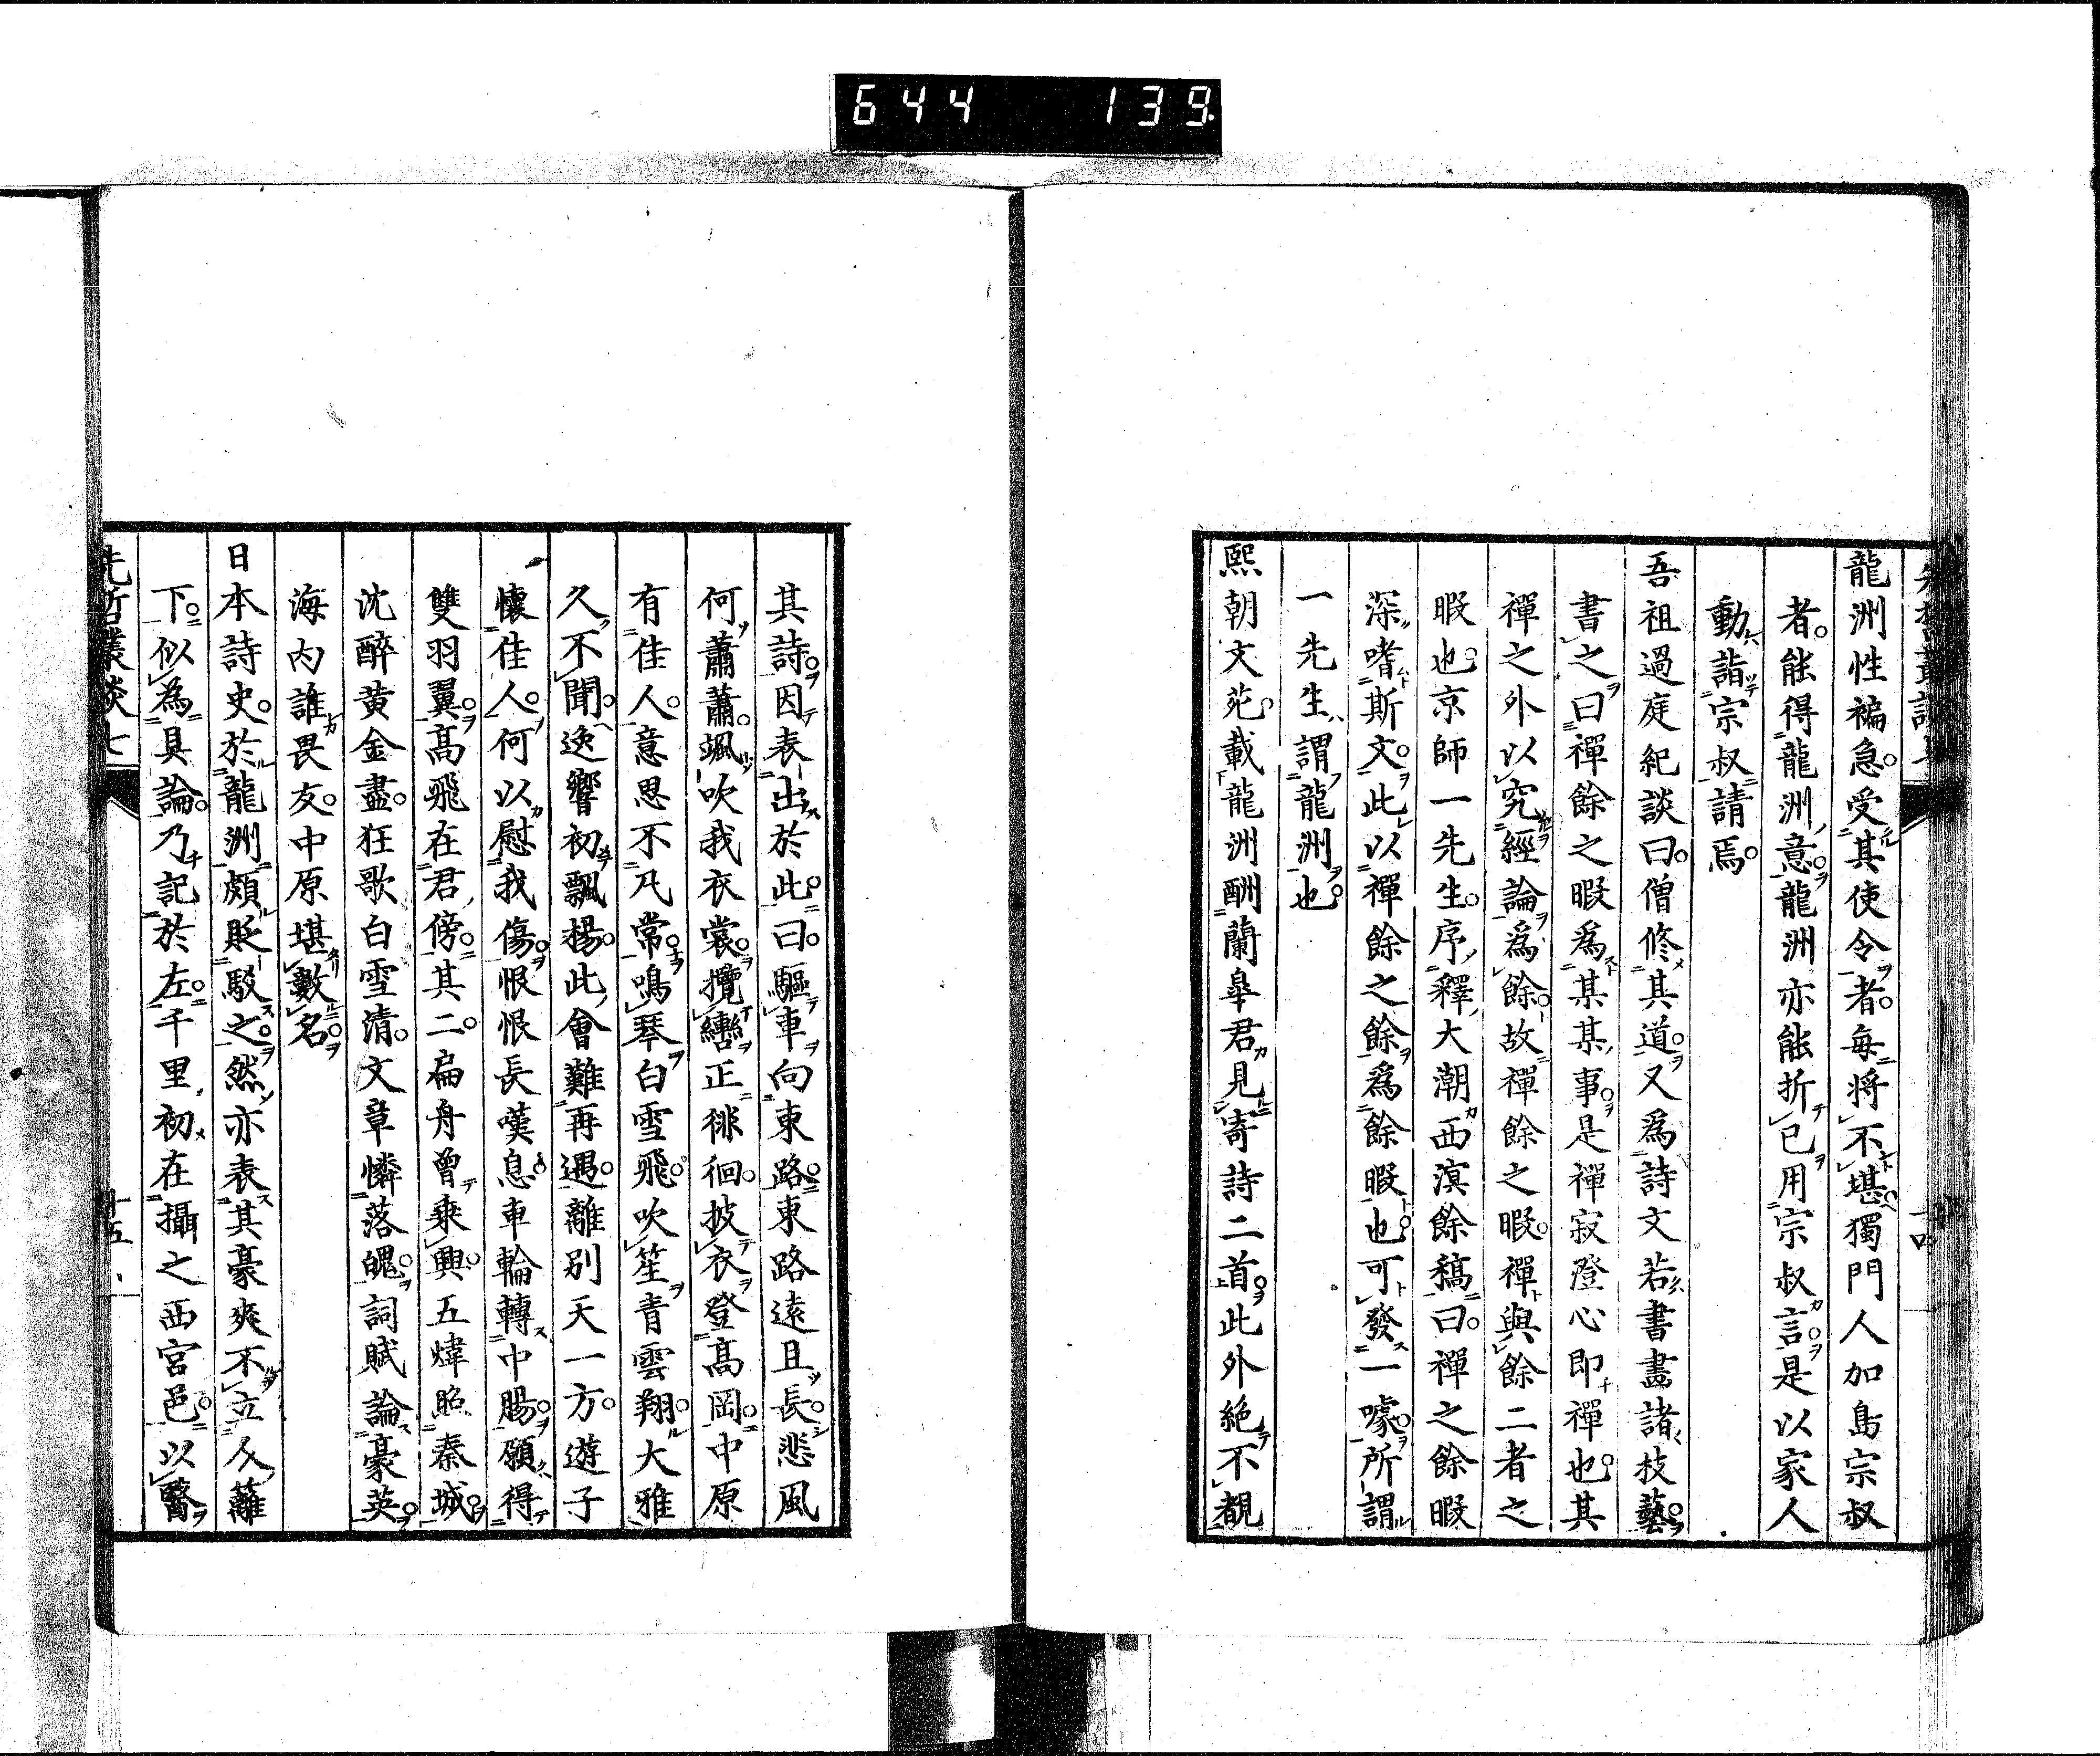 644 139
龍洲性褊急。受其使令者。毎將不堪。獨門人加島宗叔
者。能得龍洲意。龍洲亦能折己用宗叔言。是以家人
動詣宗叔請焉。
吾祖過庭紀談曰。僧修其道。又爲詩文若書畫諸技藝。
書之曰禪餘之暇爲某某事。是禪寂澄心即禪也。其
禪之外以究經論爲餘。故禪餘之暇。禪與餘二者之
暇也。京師一先生。序釋大潮西溟餘稿曰。禪之餘暇
深嗜斯文。此以禪餘之餘爲餘暇也。可發一噱。所謂
一先生。謂龍洲也。
熙朝文苑。載龍洲酬蘭皐君見寄詩二首。此外絶不覩
其詩。因表出於此。曰。驅車向東路。東路遠且長。悲風
何蕭蕭。颯吹我衣裳。攬轡正徘徊。披衣登高岡。中原
有佳人。意思不凡常。鳴琴白雪飛。吹笙青雲翔。大雅
久不聞。逸響初飄楊。此會難再遇。離別天一方。遊子
懷佳人。何以慰我傷。恨恨長嘆息。車輪轉中腸。願得
雙羽翼。高飛在君傍。其二。扁舟曾乘興。五煒照秦城。
沈醉黄金盡。狂歌白雪清。文章憐落魄。詞賦論豪英。
海内誰畏友。中原堪數名。
日本詩史。於龍洲頗貶駁之。然亦表其豪爽不立人籬
下。似爲具論。乃記於左。千里初在攝之西宮邑。以醫
先哲叢談七
十五